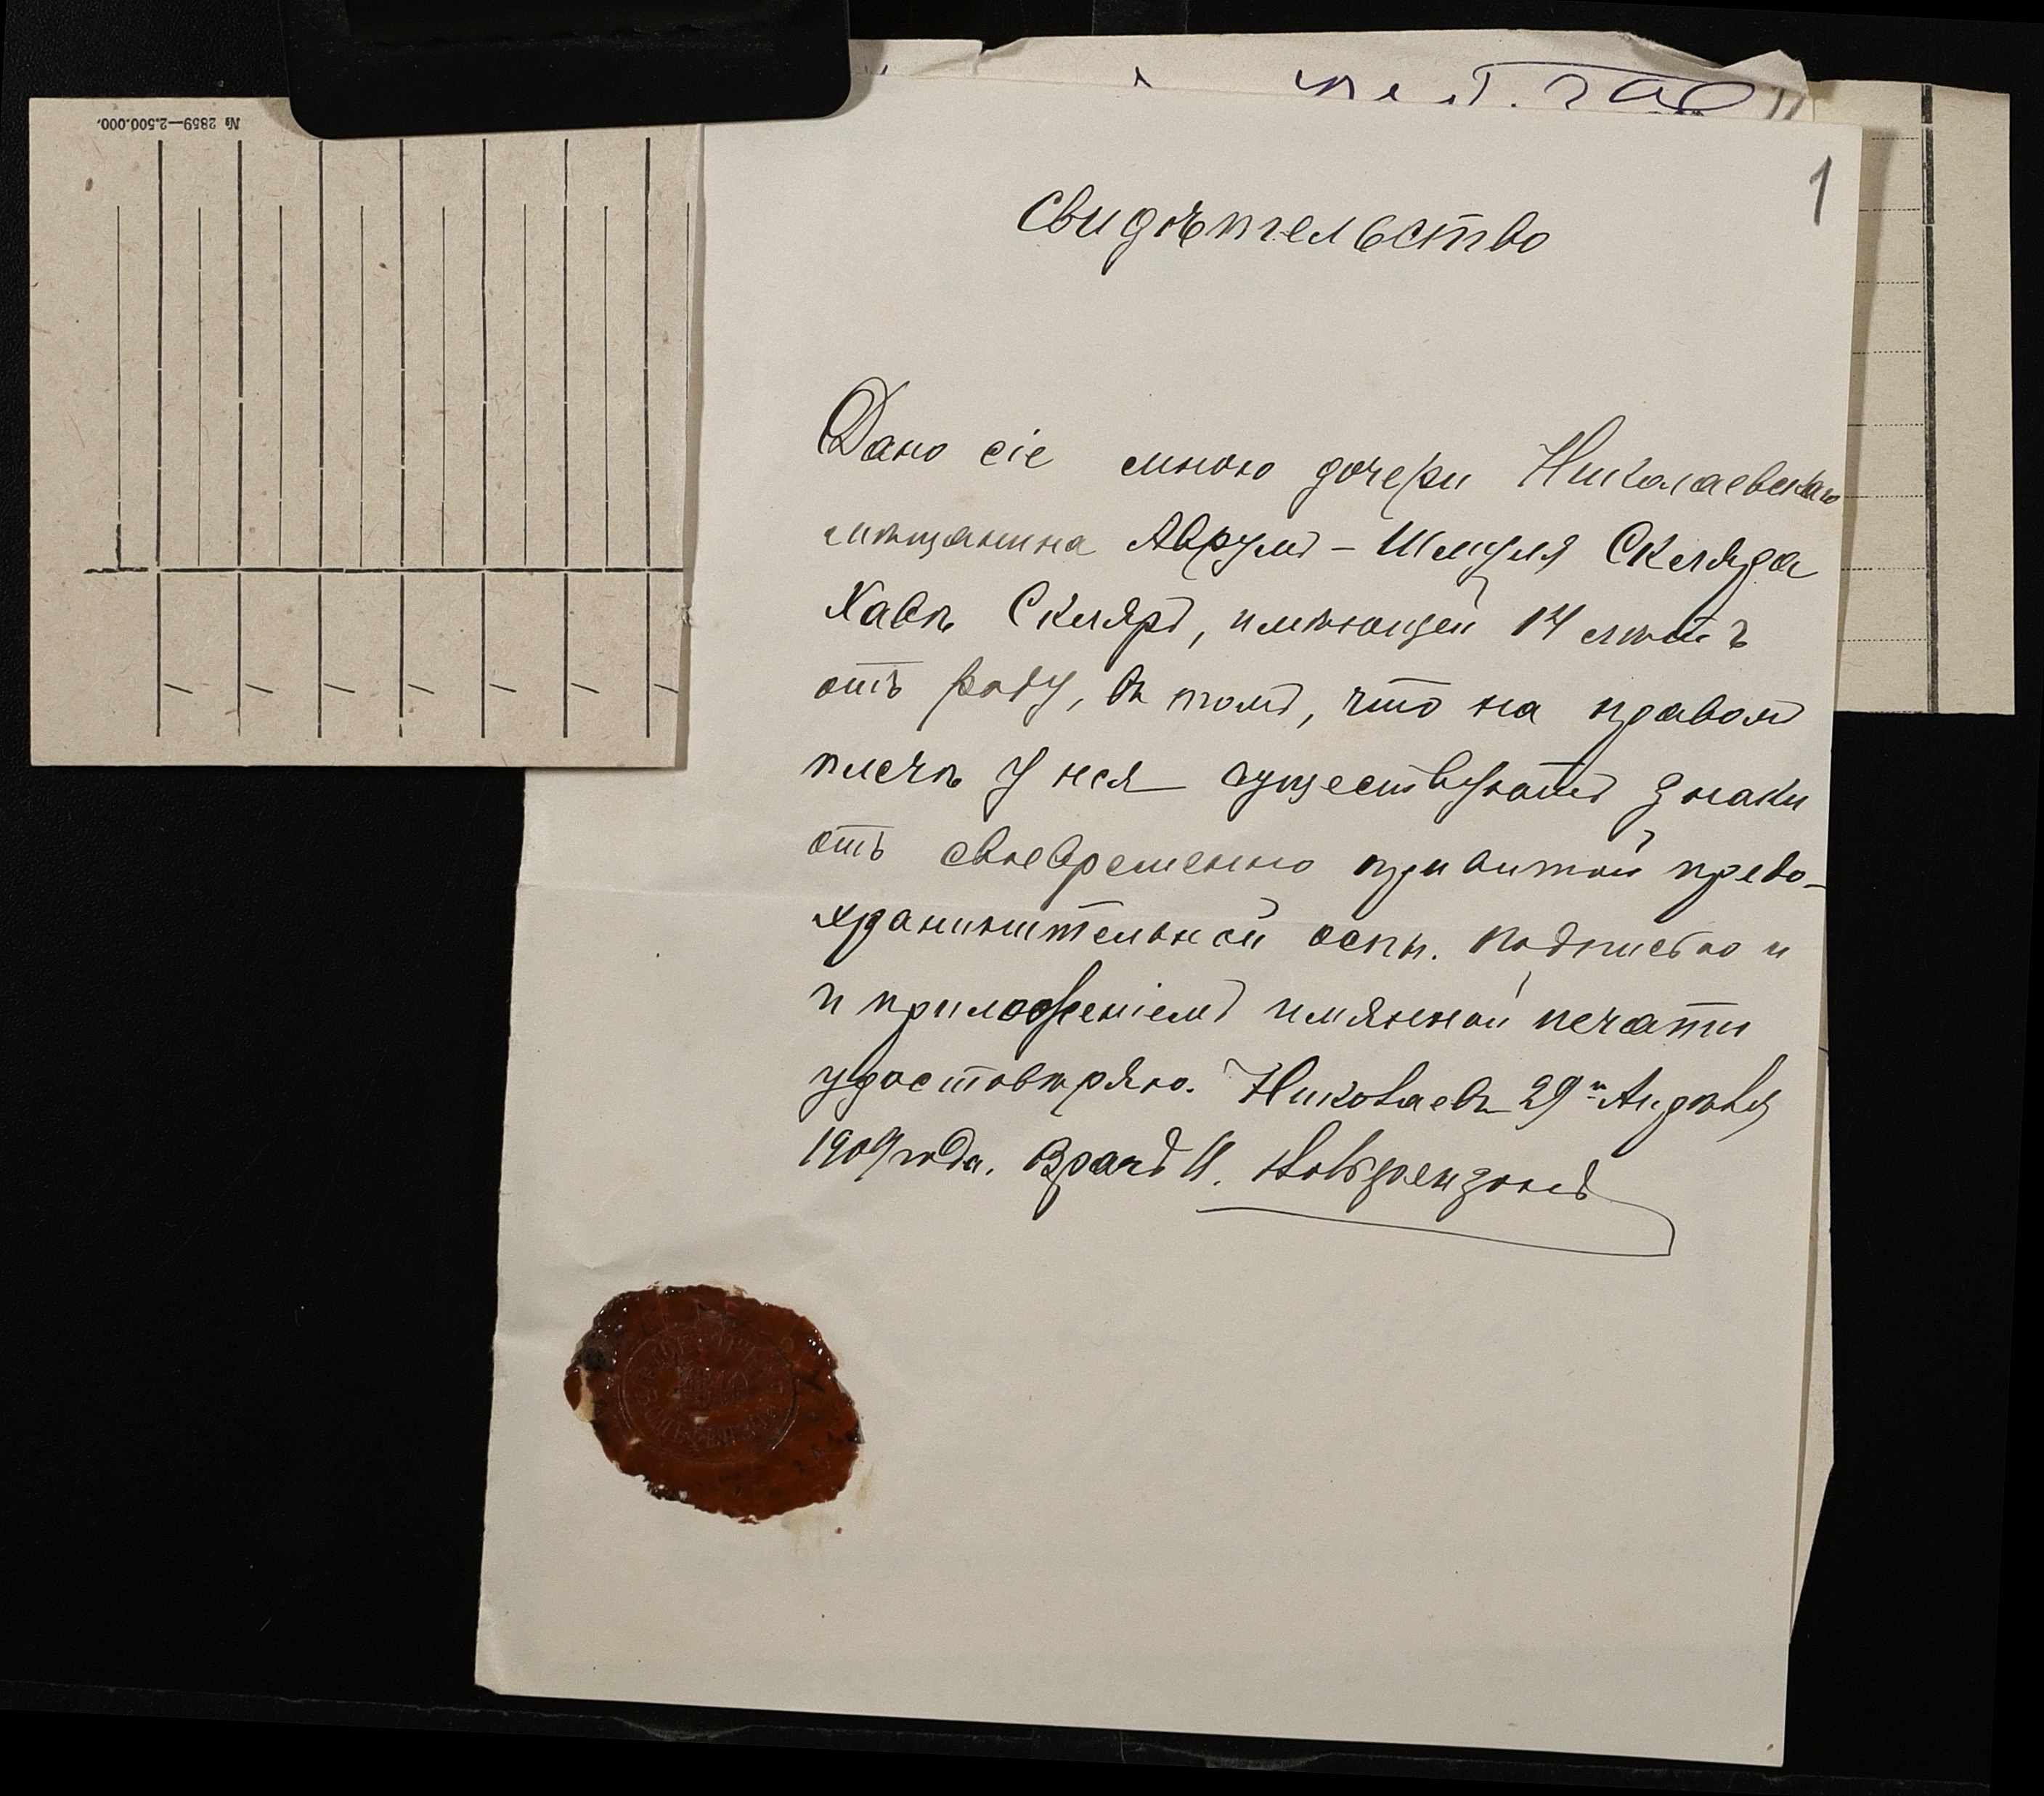 № 2859—2.500.000.
1
Свидѣтельство
Дано сіе мною дочери Николаевскаго
мѣщанина Аврумъ-Шмуля Скляра
Хавѣ Скляръ, имѣющей 14 лѣтъ
отъ роду, въ томъ, что на правомъ
плечѣ у нея существуютъ знаки
отъ своевременно привитой предо-
хранительной оспы. Подписью и
и приложеніемъ имянной печати
удостовѣряю. Николаевъ 29го Апрѣля
1909 года. Врачъ И.